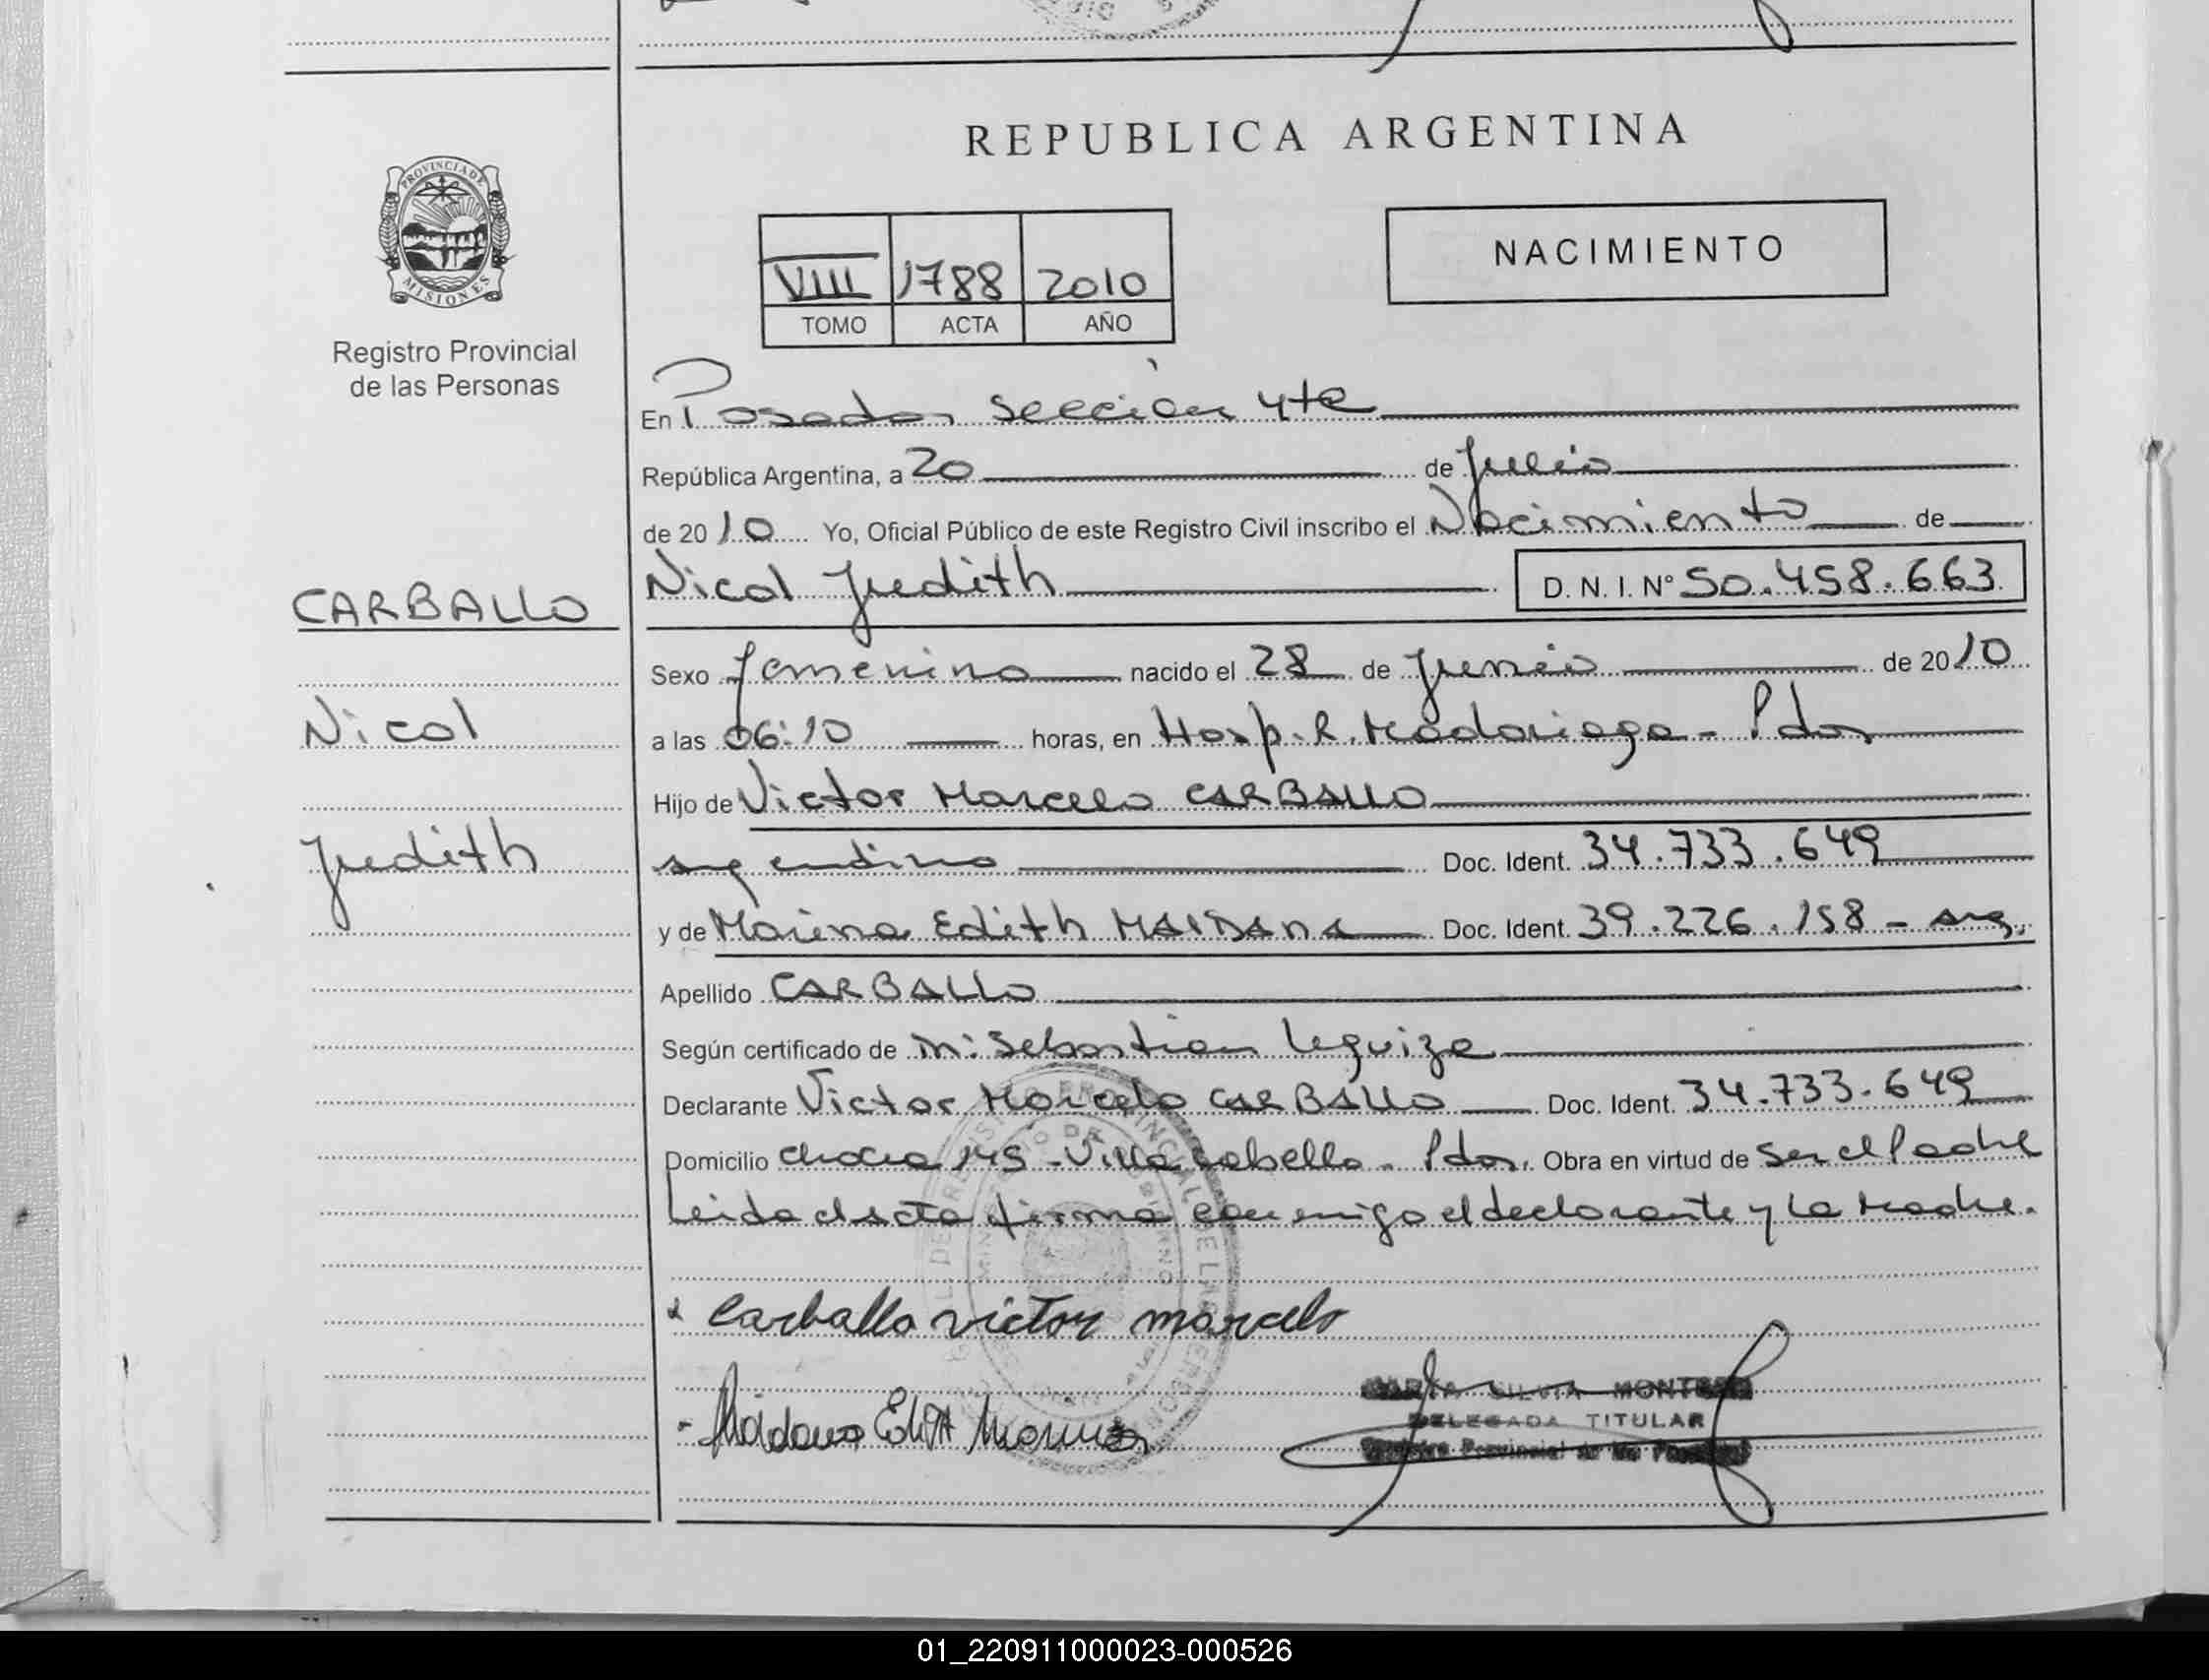 REPUBLICA ARGENTINA
PROVINCIA DE
MISIONES
Registro Provincial
de las Personas
NACIMIENTO
VIII 1788 2010
TOMO ACTA AÑO
En Posadas sección 4ta
República Argentina, a 20 de Julio
de 2010 Yo, Oficial Público de este Registro Civil inscribo el Nacimiento de
CARBALLO
Nicol Judith D. N. I. Nº 50.458.663
Sexo femenino nacido el 28 de Junio de 2010
Nicol
a las 06:10 horas, en Hosp. R. Madariaga - Pdas
Hijo de Victor Marcelo CARBALLO
Judith
argentino Doc. Ident. 34.733.649
y de Marina Edith MAIDANA Doc. Ident. 39.226.158 - arg.
Apellido CARBALLO
Según certificado de Sebastian Leguiza
Declarante Victor Marcelo CARBALLO Doc. Ident. 34.733.649
Domicilio chacra 145 - Villa Cabello - Pdas. Obra en virtud de Ser el Padre
Leida el acta firma conmigo el declarante y la Madre.
Carballo victor marcelo
Maidana Edith Marina
SILVIA MONTERO
DELEGADA TITULAR
Registro Provincial de las Personas
01_220911000023-000526